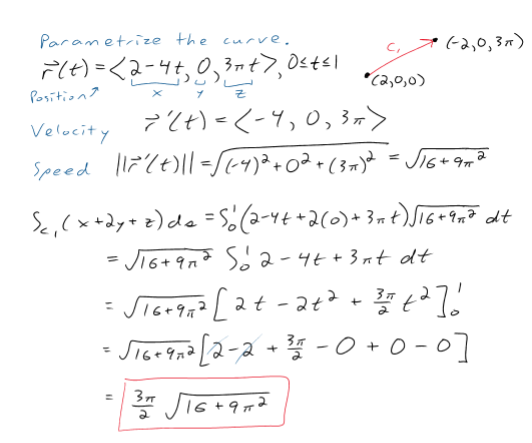 Parametrize the curve.
C₁ (-2,0,3π)
r⃗(t) = <2-4t, 0, 3πt>, 0≤t≤1
(2,0,0)
Position↗ x y z
Velocity r⃗'(t) = <-4, 0, 3π>
Speed ||r⃗'(t)|| = √((-4)² + 0² + (3π)²) = √(16+9π²)
∫_C₁ (x+2y+z) ds = ∫₀¹ (2-4t+2(0)+3πt) √(16+9π²) dt
= √(16+9π²) ∫₀¹ 2 - 4t + 3πt dt
= √(16+9π²) [2t - 2t² + 3π/2 t²]₀¹
= √(16+9π²) [2-2 + 3π/2 - 0 + 0 - 0]
= 3π/2 √(16+9π²)